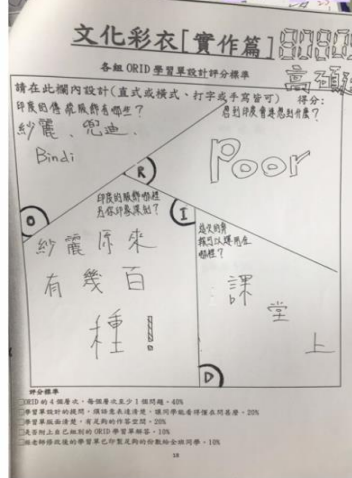 文化彩衣[實作篇]
各組 ORID 學習單設計評分標準
請在此欄內設計(直式或橫式、打字或手寫皆可) 得分:
印度的傳統服飾有哪些?
紗麗、兜迪、
Bindi
看到印度會聯想到什麼?
Poor
O
R
I
D
印度的服飾哪裡
為你印象深刻?
紗麗原來
有幾百
種!
哪裡?
課
堂
上
評分標準
□ORID 的 4 個層次,每個層次至少 1 個問題。40%
□學習單設計的提問,須語意表達清楚、讓同學能看得懂在問甚麼。20%
□學習單版面清楚,有足夠的作答空間。20%
□是否附上自己組別的 ORID 學習單解答。10%
□經老師修改後的學習單已印製足夠的份數給全班同學。10%
18